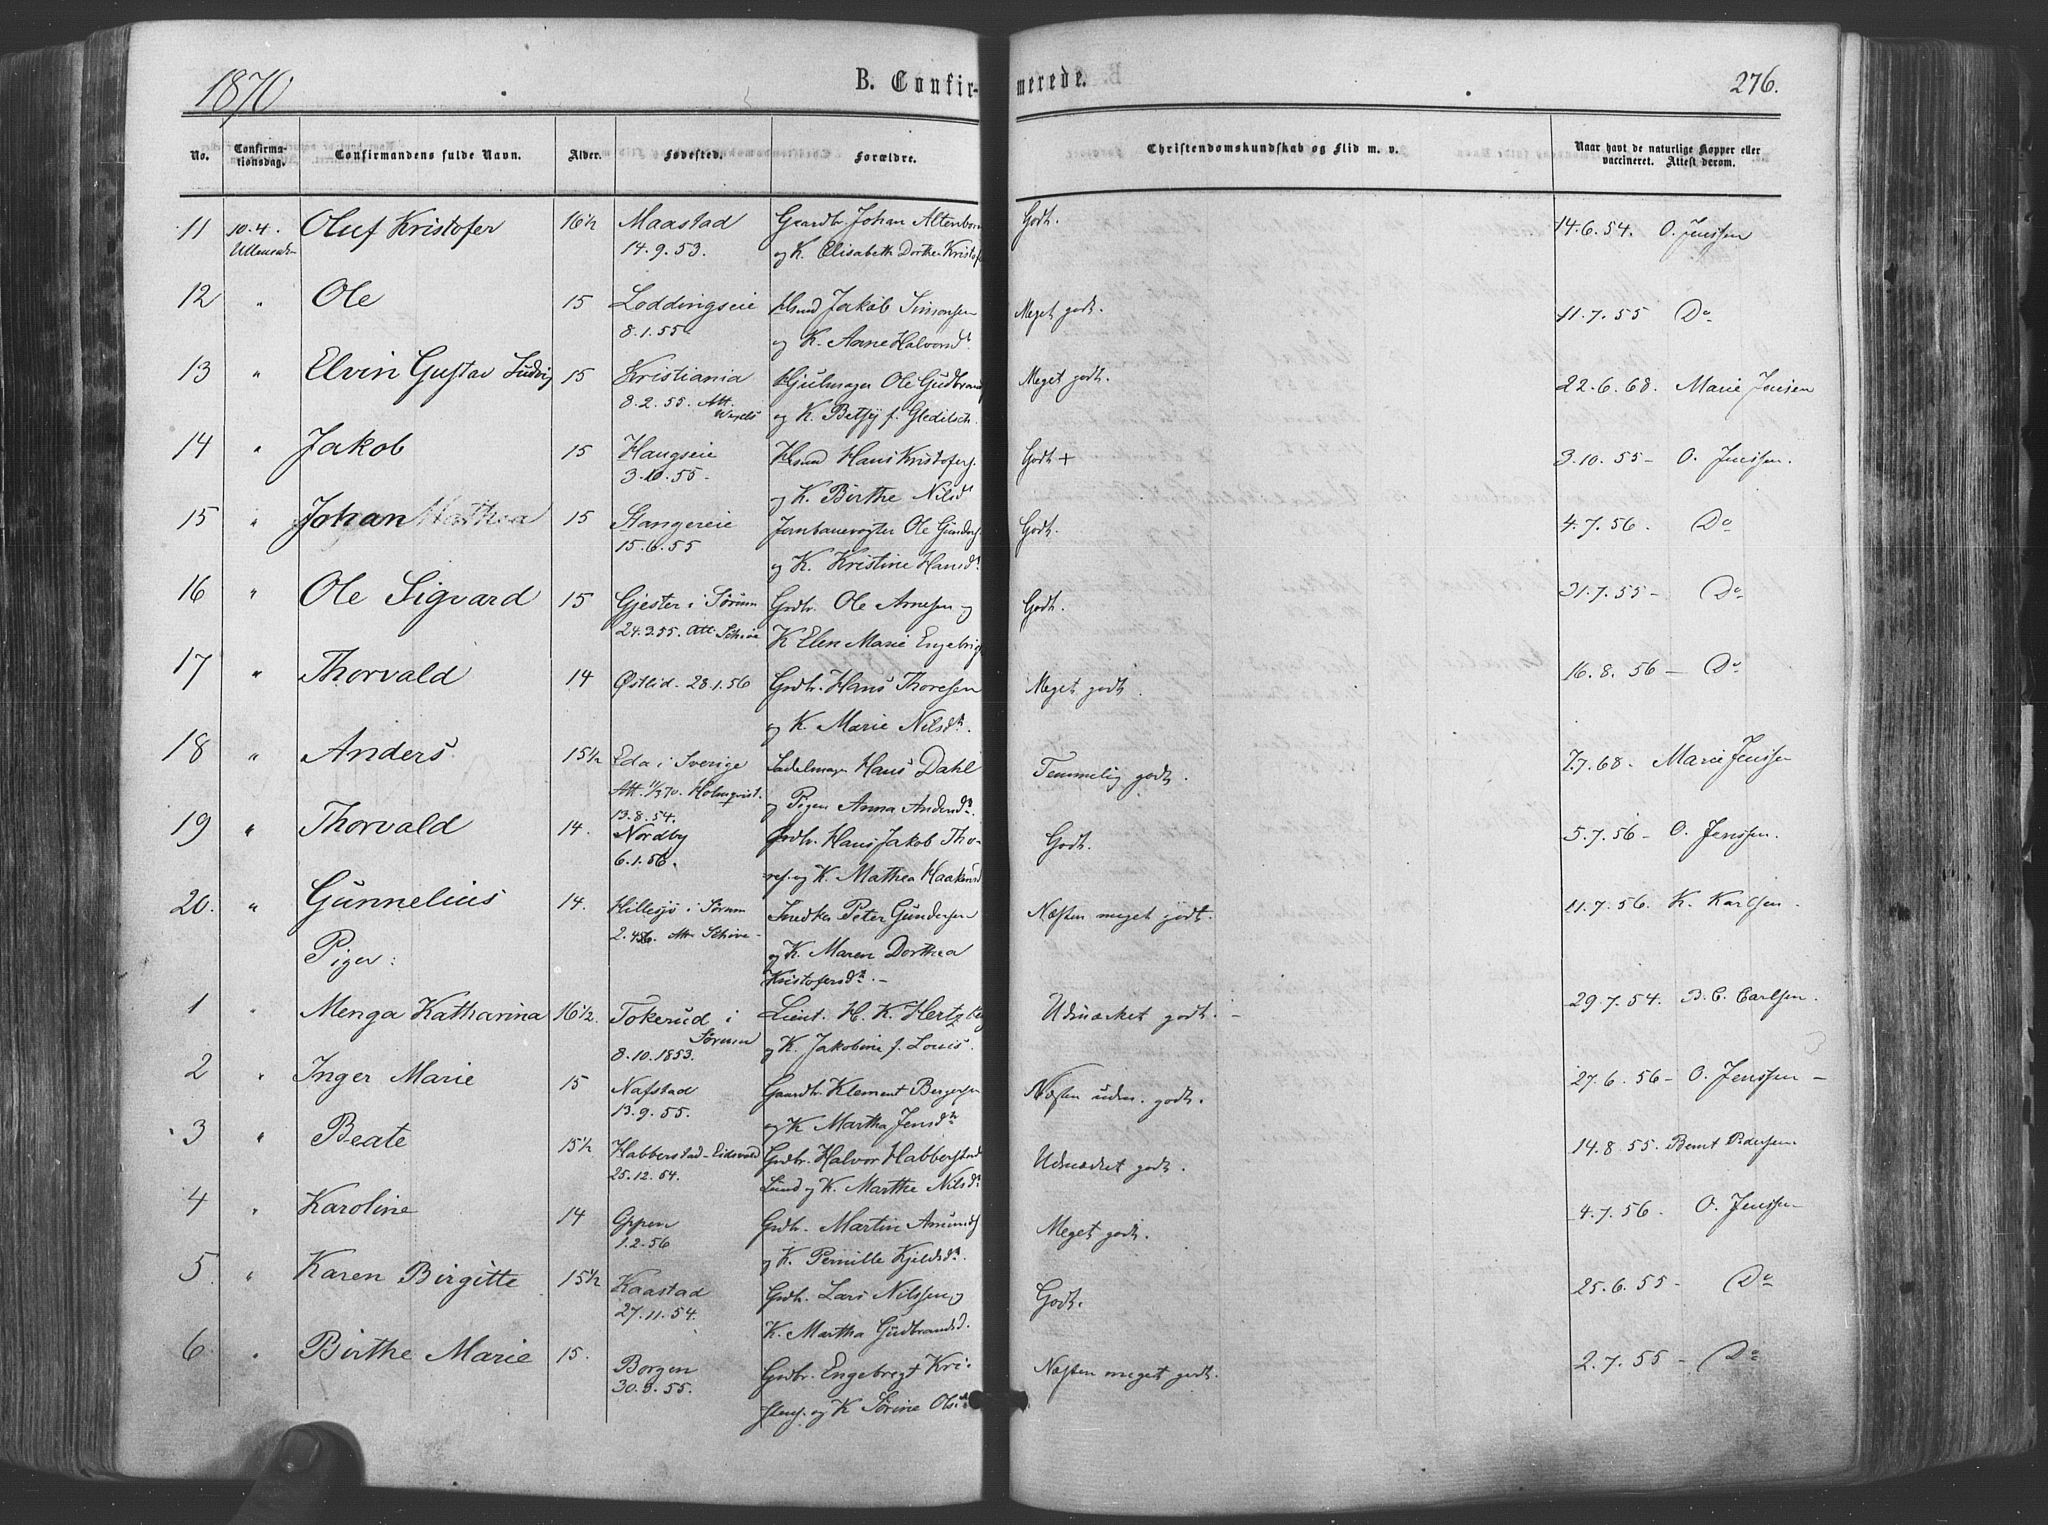 1870 B. Confirmerede. 276.
No. Confirmationsdag. Confirmandens fulde Navn. Alder. Fødested. Forældre. Christendomskundskab og Flid m. v. Naar havt de naturlige Kopper eller vaccineret. Attest derom.
11 10.4. Oluf Kristofer 16½ Maastad Gaardbr. Johan Altenborn Godt. 14.6.54. O. Jenssen
Ullensaker 14.9.53. og K. Elisabeth Dorthea Kristof
12 " Ole 15 Loddingseie Husmd Jakob Simonsen Meget godt. 11.7.55 Do
8.1.55. og K. Anne Halvorsdr
13 " Elvin Gustav Ludvig 15 Kristiania Hjulmager Ole Gudbrands Meget godt. 22.6.68. Marie Jensen
8.2.55. Att. Wexels og K. Betsy f. Gleditsch.
14 " Jakob 15 Haugseie Husmd Hans Kristofers. Godt + 3.10.55 - O. Jenssen.
3.10.55. og K. Birthe Nilsdr
15 " Johan 15 Stangereie Jernbanevogter Ole Gunders. Godt. 4.7.56. Do
15.6.55 og K. Kristine Hansdr.
16 " Ole Sigvard 15 Gjester i Sørum Grdbr. Ole Arnesen og Godt. 31.7.55 - Do
24.3.55. Att. Schive K Elen Marie Engebrigts
17 " Thorvald 14 Østlid. 28.1.56 Grdbr. Hans Thoresen Meget godt. 16.8.56 - Do
og K. Marie Nilsdr.
18 " Anders 15½ Eda i Sverige Sadelmager Hans Dahl Temmelig godt. 7.7.68 - Marie Jenssen
Att. 11/3 70. Holmqvist. og Pigen Anna Andersdr.
13.8.54.
19 " Thorvald 14. Nordby Grdbr. Hans Jakob Tho- Godt. 5.7.56 - O. Jenssen.
6.1.56. res. og K. Mathea Haakensd
20. " Gunnelius 14. Hillesjø i Sørum Snedker Peter Gundersen Næsten meget godt. 11.7.56. K. Karlsen.
2.4.56. Att. Schive - og K. Maren Dorthea
Piger: Kristofersdr. -
1 " Menga Katharina 16½. Tokerud i Sørum Lieut. H. K. Hertzberg Udmærket godt. - 29.7.54. B. C. Carlsen.
8.10.1853. og K. Jakobine f. Louis.
2 " Inger Marie 15 Nafstad Gaardbr. Klement Bergersen Næsten udm. godt. 27.6.56 - O. Jenssen -
13.9.55. og K Martha Jensdr
3 " Beate 15½ Habberstad - Eidsvold Grdbr. Halvor Habberstad Udmærket godt. 14.8.55. Bernt Pedersen
25.12.54. Lund og K. Marthe Nilsdr.
4 " Karoline 14 Oppen Grdbr. Martin Amunds Meget godt. 4.7.56. O. Jenssen
1.2.56 og K. Pernille Kjeldsdr.
5. " Karen Birgitte 15½ Kaastad Grdbr. Lars Nilssen og Godt. 25.6.55 - Do
27.11.54. K. Martha Gudbrandsd.
6. " Birthe Marie 15. Borgen Grdbr. Engebregt Kri- Næsten meget godt. 2.7.55 - Do
30.3.55. stens. og K Sørine Olsd